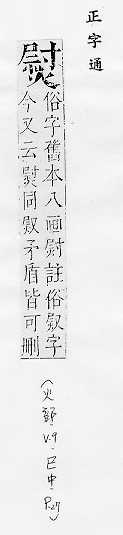 正字通
㷉
俗字舊本八画尉註俗叞字
今又云㷉同叞矛盾皆可刪
(火部.V.9-巳中-P.27)